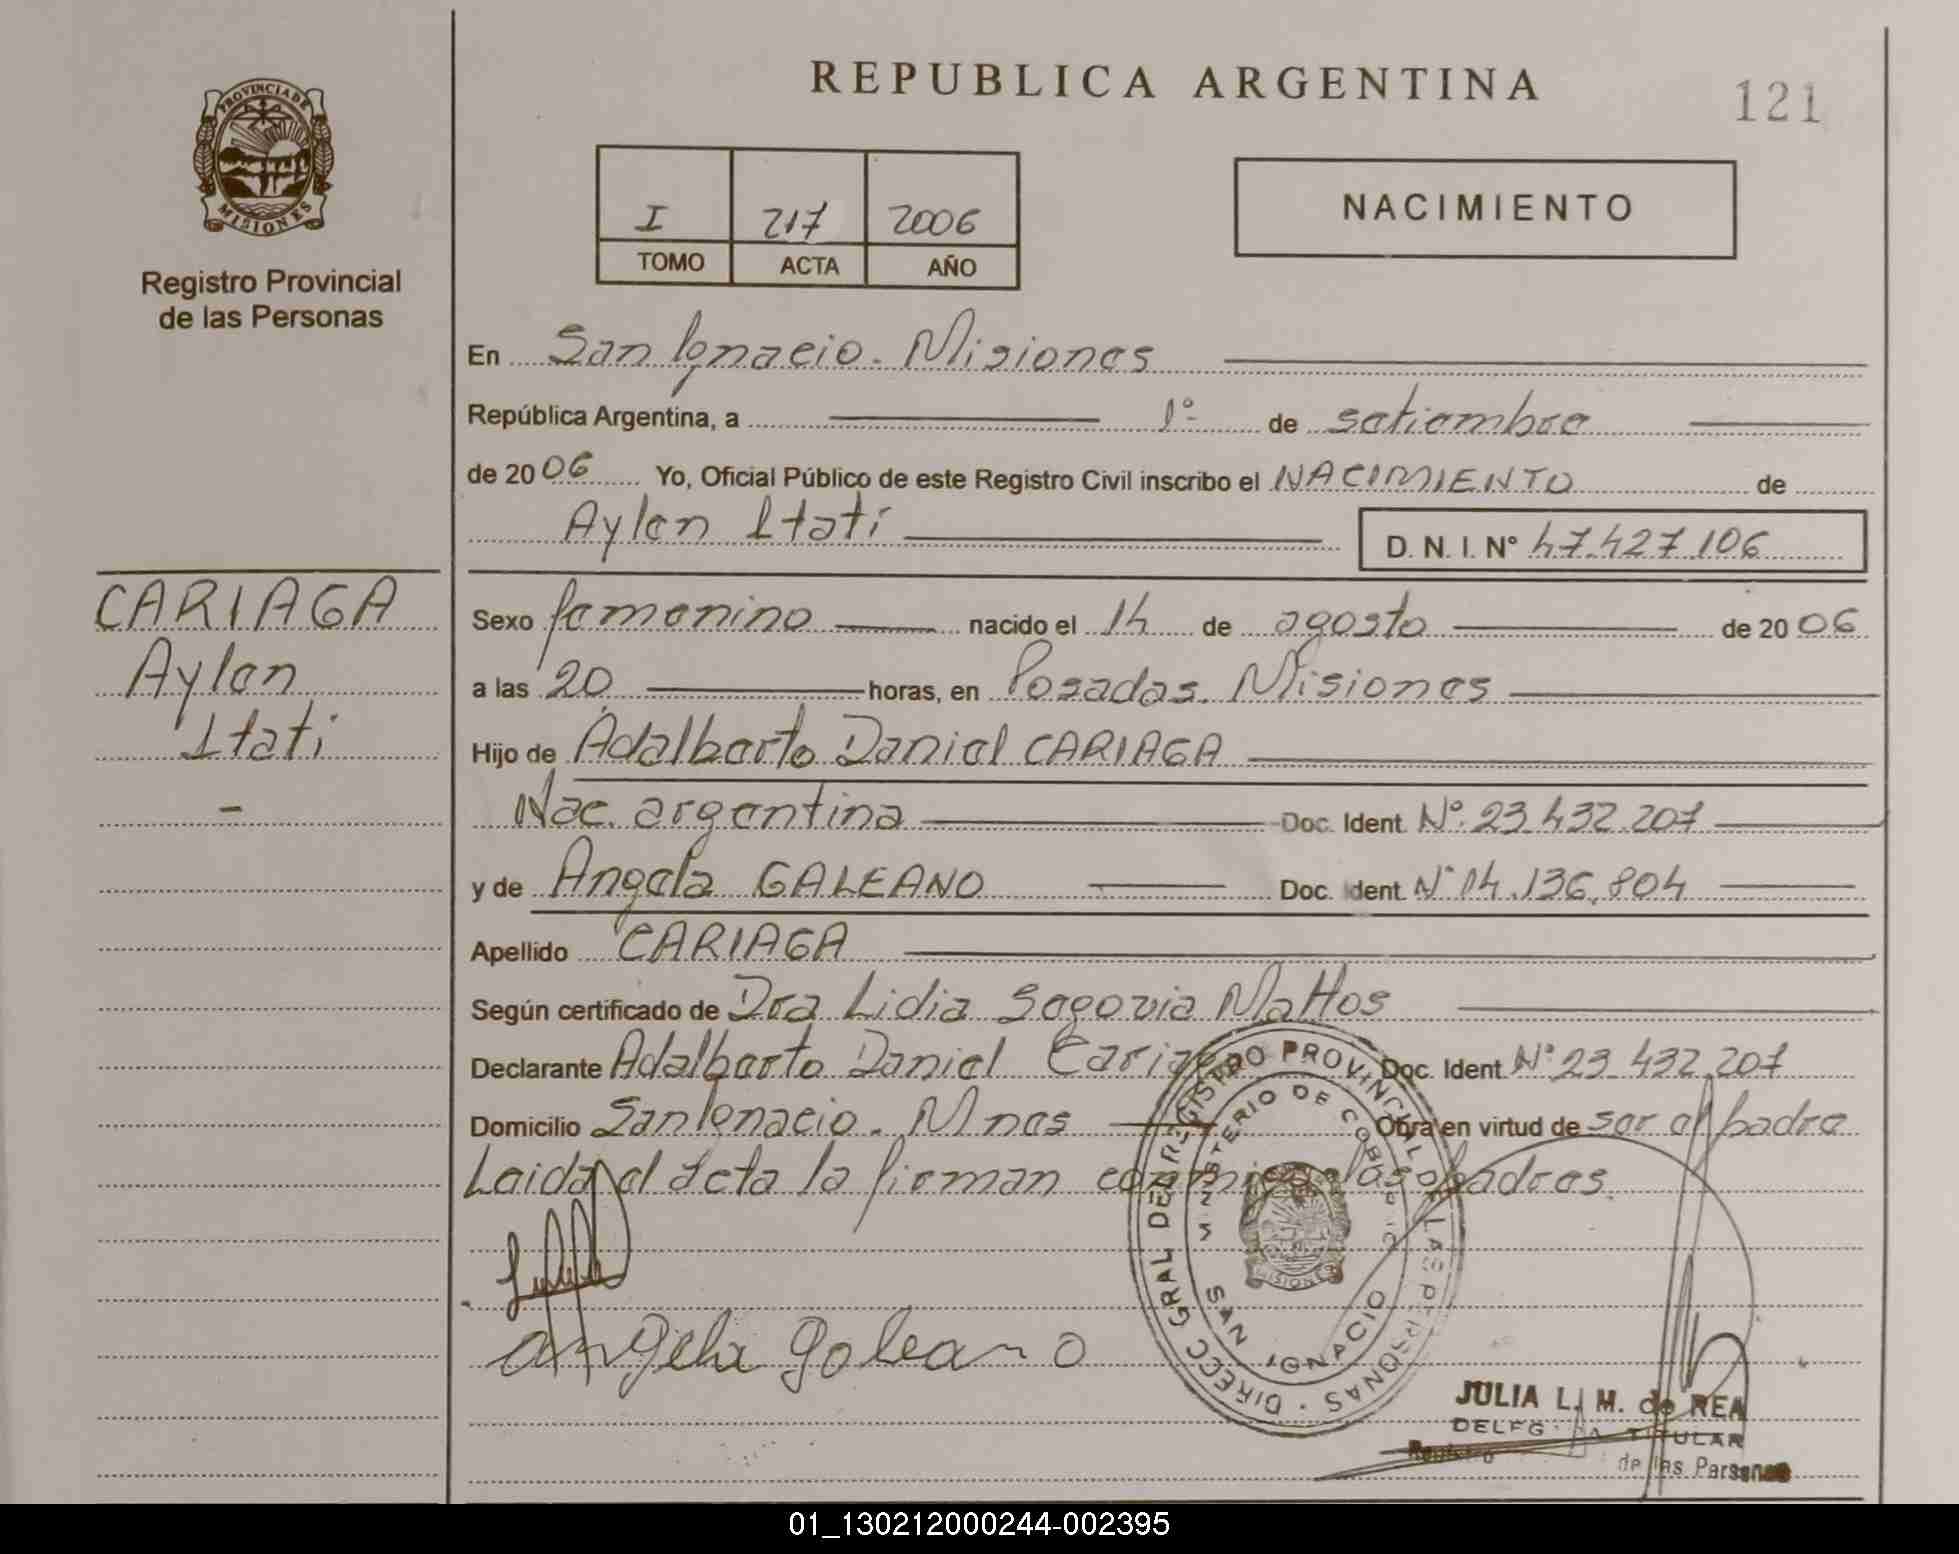 REPUBLICA ARGENTINA
121
PROVINCIA DE
MISIONES
Registro Provincial
de las Personas
I 217 2006
TOMO ACTA AÑO
NACIMIENTO
En San Ignacio. Misiones
República Argentina, a 1º de setiembre
de 2006 Yo, Oficial Público de este Registro Civil inscribo el NACIMIENTO de
Aylen Itatí
D. N. I. Nº 47.427.106
CARIAGA
Aylen
Itati
Sexo femenino nacido el 14 de agosto de 2006
a las 20 horas, en Posadas. Misiones
Hijo de Adalberto Daniel CARIAGA
Nac. argentina Doc. Ident. Nº 23.432.207
y de Angela GALEANO Doc. Ident. Nº 14.136.804
Apellido CARIAGA
Según certificado de Dra Lidia Segovia Mattos
Declarante Adalberto Daniel Cariaga Doc. Ident. Nº 23.432.207
Domicilio San Ignacio. Mnes Obra en virtud de ser el padre
Leida el acta la firman conmigo los padres.
DIRECC GRAL DEL REGISTRO PROVINCIAL DE LAS PERSONAS
MINISTERIO DE GOBIERNO
MISIONES
SAN IGNACIO
angela galeano
JULIA L. M. de REA
TITULAR
Registro de las Personas
01_130212000244-002395